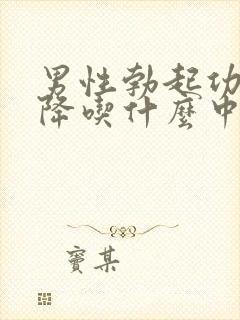 男性勃起功
降喫什麼中
竇某